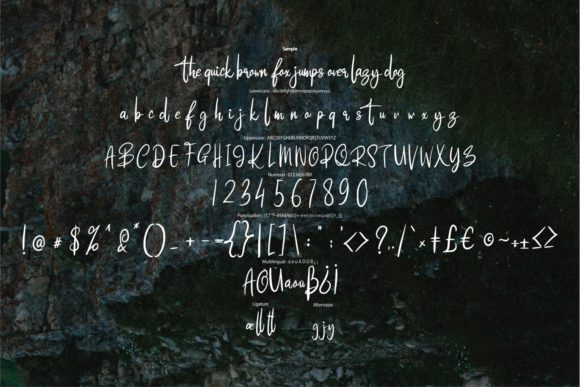 Sample
the quick brown fox jumps over lazy dog
Lowercase : abcdefghijklmnopqrstuvwxyz
a b c d e f g h i j k l m n o p q r s t u v w x y z
Uppercase : ABCDEFGHIJKLMNOPQRSTUVWXYZ
ABCDEFGHIJKLMNOPQRSTUVWXYZ
Numeral : 0123456789
1234567890
Punctuation :
! @ # $ % ^ & * () _ + - = {} | [] \ : " ; ' <> ? , . / ` × ‡ £ € © ~ ÷ ± ≤ ≥
Multilingual :
AOUaouβ¿¡
Ligature Alternates
æ ll tt g j y